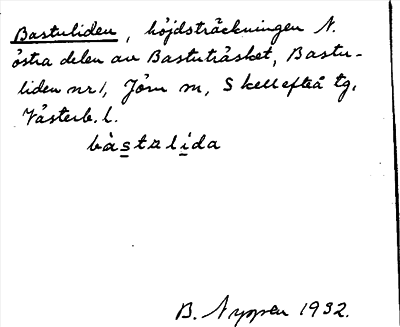 Bastuliden, höjdsträckningen N.
östra delen av Bastuträsket, Bastu-
liden nr 1, Jörn sn, Skellefteå tg,
Västerb. l.
bàstulida
B. Nyman 1932.